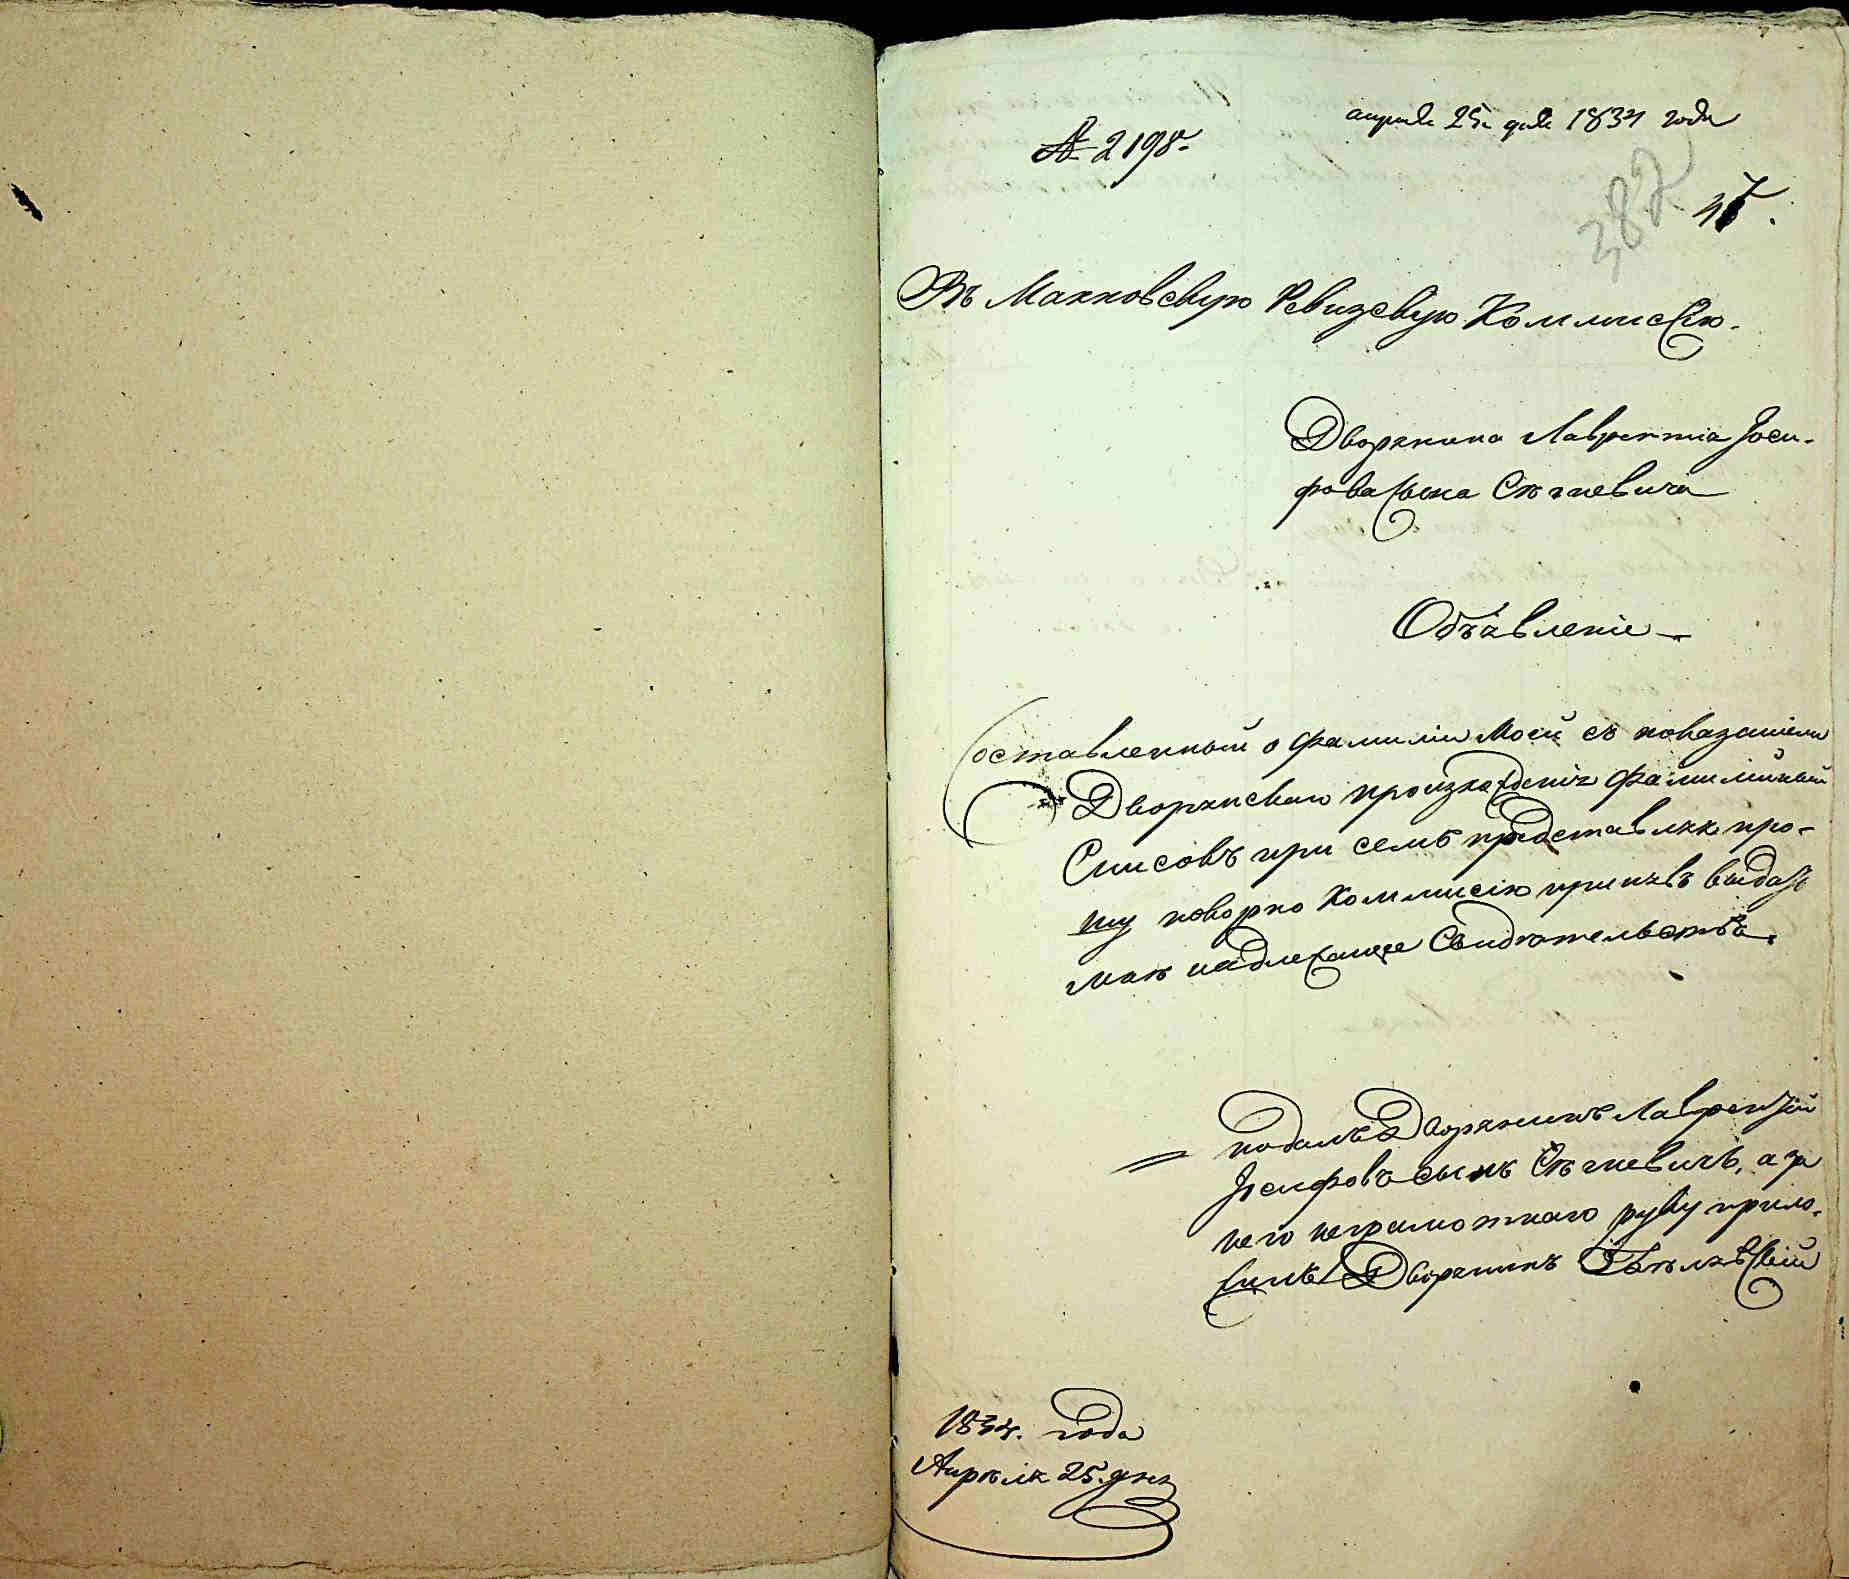 апреля 25 дня 1834 года
№ 2198.
382
47.
Въ Минскую Ревизскую Коммисію.
Дворянина Лаврентія Іоси-
фова сына Сѣгневича
Объявленіе
Составленный о фамиліи моей съ показаніемъ
Дворянскаго произхожденія фамилійный
Списокъ при семъ представляя про-
шу покорно Коммисію принявъ выдать
мнѣ надлежащее Свидѣтельство.
подалъ Дворянинъ Лаврентій
Іосифовъ сынъ Сѣгневичъ, а за
него неграмотнаго руку прило-
жилъ Дворянинъ
1834. года
Апрѣля 25. дня